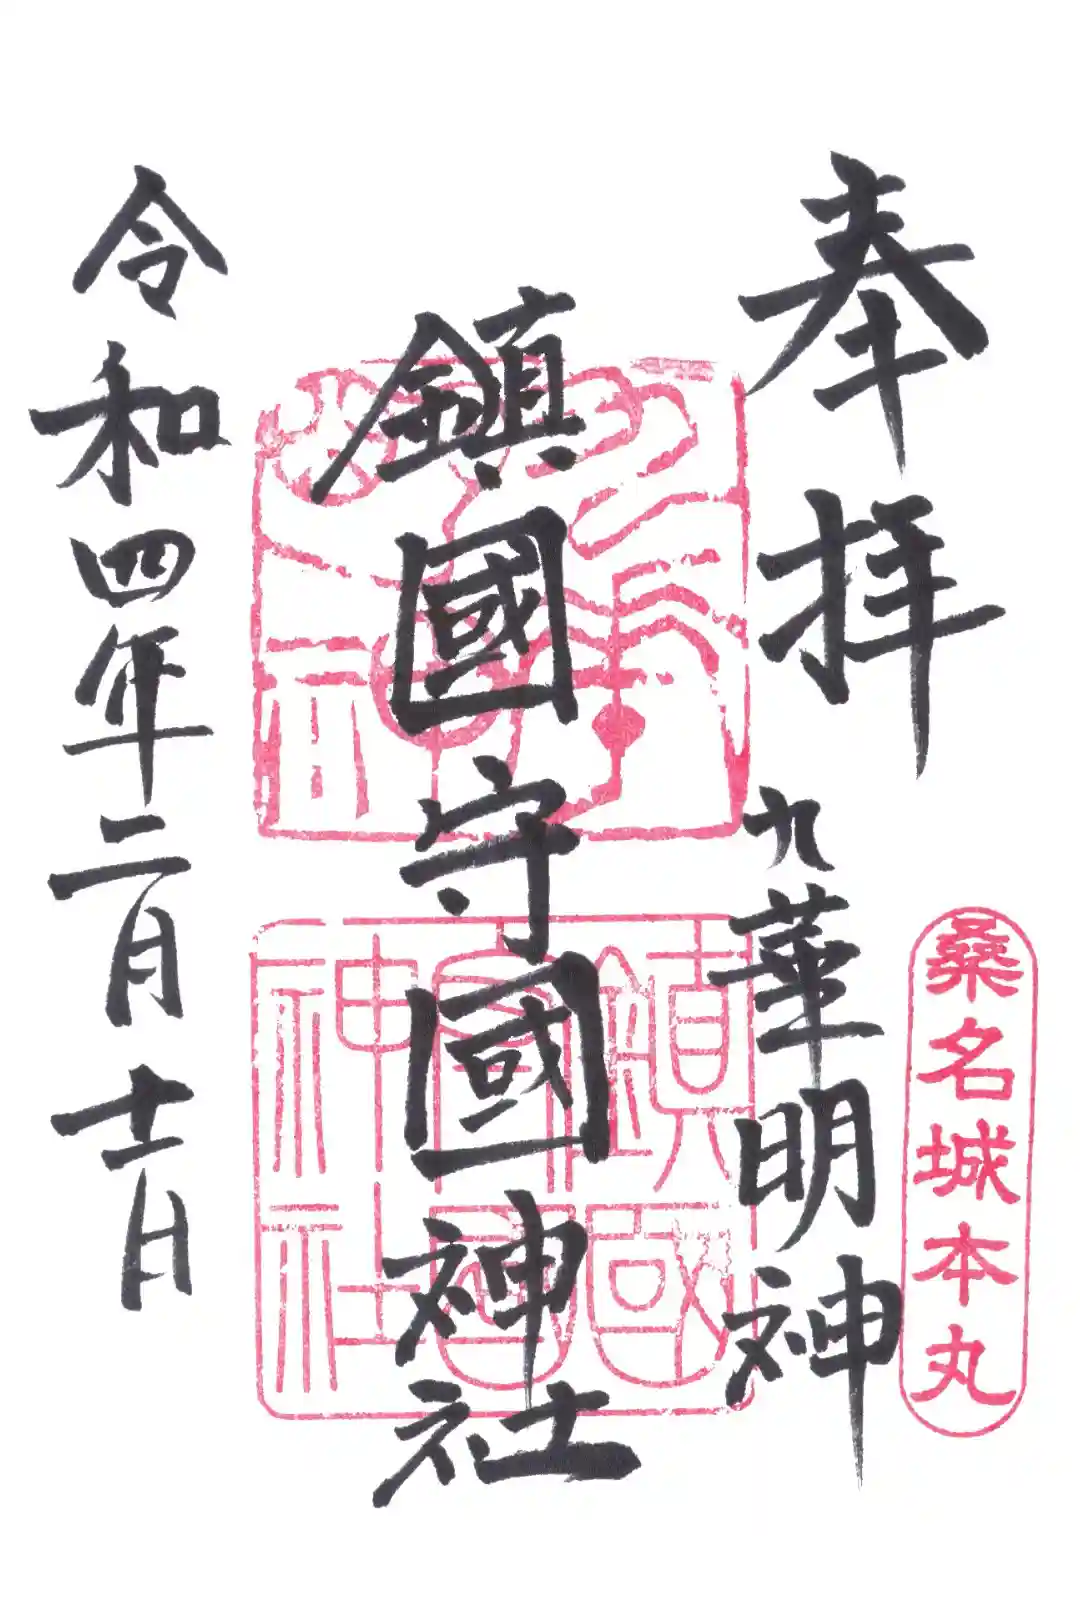 奉拝
桑名城本丸
九華明神
鎮國守國神社
鎮國
守國
神社
令和四年二月十一日